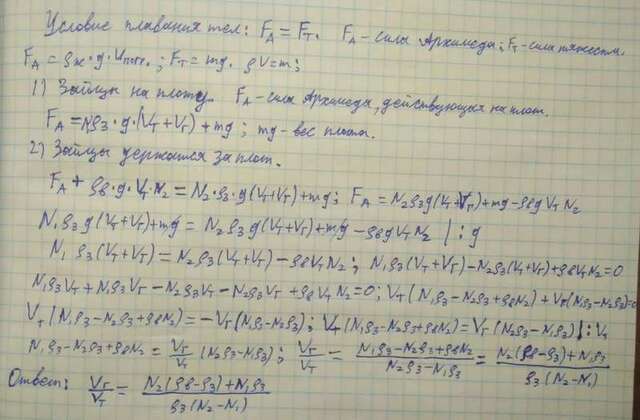 Условие плавания тел: F_A = F_T. F_A - сила Архимеда; F_T - сила тяжести.
F_A = ρж·g·Vпогр.; F_T = mg. ρV = m;
1) Зайцы на плоту. F_A - сила Архимеда, действующая на плот.
F_A = N₁ρ₃·g·(V_T + V_Г) + mg; mg - вес плота.
2) Зайцы держатся за плот.
F_A + ρв·g·V_T·N₂ = N₂·ρ₃·g(V_T+V_Г)+mg; F_A = N₂ρ₃g(V_T+V_Г)+mg-ρвgV_TN₂
N₁ρ₃g(V_T+V_Г)+mg = N₂ρ₃g(V_T+V_Г)+mg-ρвgV_TN₂ | :g
N₁ρ₃(V_T+V_Г) = N₂ρ₃(V_T+V_Г)-ρвV_TN₂; N₁ρ₃(V_T+V_Г)-N₂ρ₃(V_T+V_Г)+ρвV_TN₂=0
N₁ρ₃V_T+N₁ρ₃V_Г-N₂ρ₃V_T-N₂ρ₃V_Г+ρвV_TN₂=0; V_T(N₁ρ₃-N₂ρ₃+ρвN₂)+V_Г(N₁ρ₃-N₂ρ₃)=0
V_T(N₁ρ₃-N₂ρ₃+ρвN₂) = -V_Г(N₁ρ₃-N₂ρ₃); V_T(N₁ρ₃-N₂ρ₃+ρвN₂) = V_Г(N₂ρ₃-N₁ρ₃) |:V_T
N₁ρ₃-N₂ρ₃+ρвN₂ = V_Г/V_T (N₂ρ₃-N₁ρ₃); V_Г/V_T = (N₁ρ₃-N₂ρ₃+ρвN₂)/(N₂ρ₃-N₁ρ₃) = (N₂(ρв-ρ₃)+N₁ρ₃)/(ρ₃(N₂-N₁))
Ответ: V_Г/V_T = (N₂(ρв-ρ₃)+N₁ρ₃)/(ρ₃(N₂-N₁))